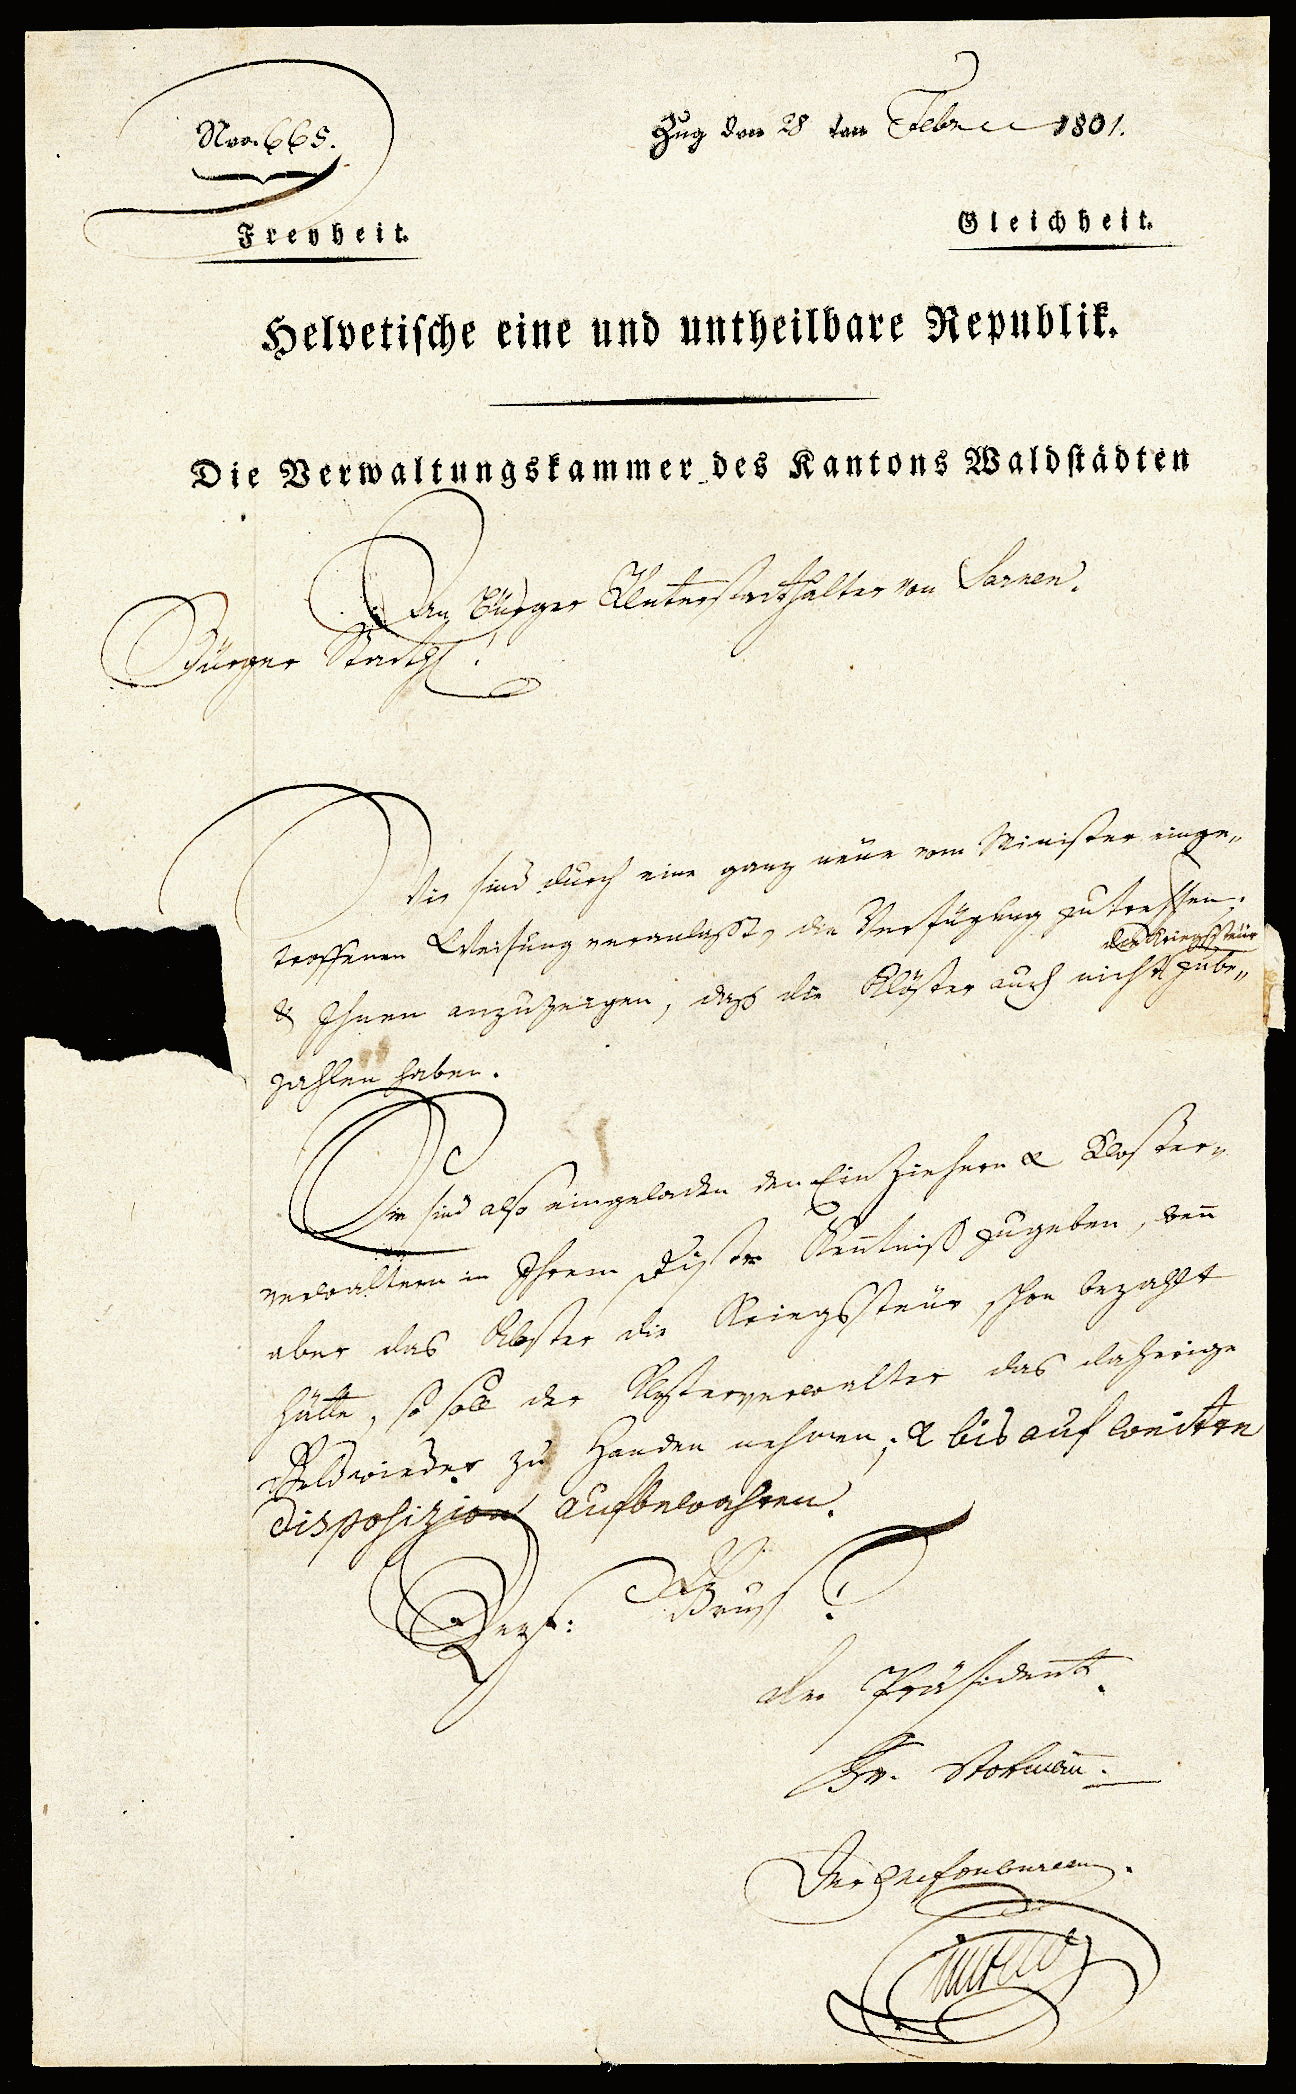 Nro. 665.
Zug den 28 ten Febru 1801.
Freyheit.
Gleichheit.
Helvetische eine und untheilbare Republik.
Die Verwaltungskammer des Kantons Waldstädten
An Bürger Unterstatthalter von Sarnen.
Bürger Statth!
Wir sind durch eine ganz neüe vom Minister einge„
troffenen Weisung veranlasst, die Verfügung zu treffen,
die Kriegssteür
& Ihnen anzuzeigen, dass die Klöster auch nicht zube„
zahlen haben.
Sie sind also eingeladen den Einziehern & Kloster„
verwaltern in Ihrem Distr Kentniss zugeben, wen̄
aber das Kloster die Kriegssteür schon bezahlt
hätte, so soll der Klosterverwalter das daherige
Geld wieder zu Handen nehmen, & bis auf weitere
disposizion aufbewahren.
Repub: Gruss!
der Präsident.
der Chef on bureau.